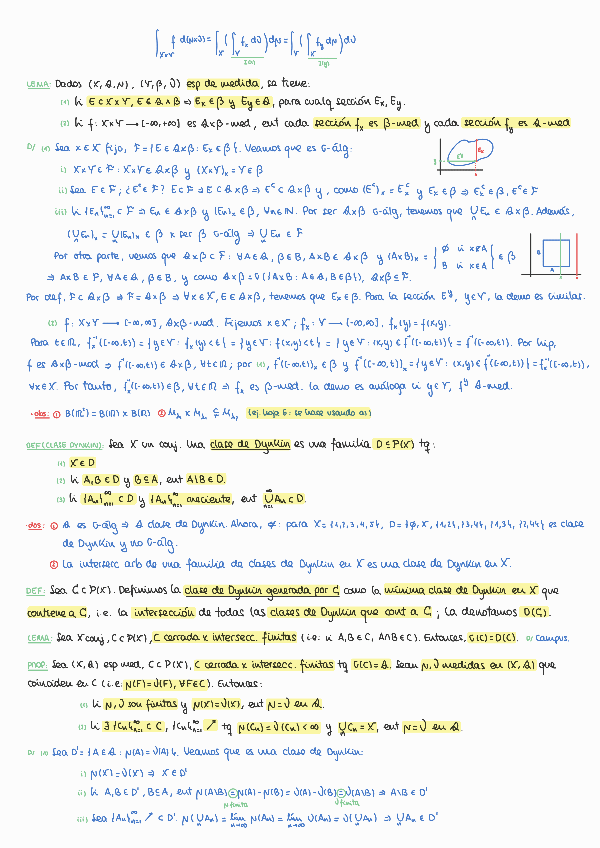 ∫_{X×Y} f d(μ×ν) = ∫_X (∫_Y f_x dν) dμ = ∫_Y (∫_X f_y dμ) dν
LEMA: Dados (X, A, μ), (Y, β, ν) esp de medida, se tiene:
(1) Si E ⊂ X×Y, E ∈ A×β ⇒ E_x ∈ β y E_y ∈ A, para cualq sección E_x, E_y.
(2) Si f: X×Y → [-∞,+∞] es A×β-med, ent cada sección f_x es β-med y cada sección f_y es A-med
D/ (1) Sea x ∈ X fijo, F = {E ∈ A×β : E_x ∈ β}. Veamos que es σ-álg:
i) X×Y ∈ F : X×Y ∈ A×β y (X×Y)_x = Y ∈ β
ii) Sea E ∈ F; ¿E^c ∈ F? E ∈ F ⇒ E ∈ A×β ⇒ E^c ∈ A×β y, como (E^c)_x = E_x^c y E_x ∈ β ⇒ E_x^c ∈ β, E^c ∈ F
iii) Si {E_n}_{n=1}^∞ ⊂ F ⇒ E_n ∈ A×β y (E_n)_x ∈ β, ∀n∈ℕ. Por ser A×β σ-álg, tenemos que ⋃_n E_n ∈ A×β. Además,
(⋃_n E_n)_x = ⋃_n (E_n)_x ∈ β x ser β σ-álg ⇒ ⋃_n E_n ∈ F
Por otra parte, vemos que A×β ⊂ F: ∀A∈A, B∈β, A×B ∈ A×β y (A×B)_x = { ∅ si x∉A B si x∈A } ∈ β
⇒ A×B ∈ F, ∀A∈A, B∈β, y como A×β = σ({A×B : A∈A, B∈β}), A×β ⊆ F.
Por def, F ⊂ A×β ⇒ F = A×β ⇒ ∀x∈X, E∈A×β, tenemos que E_x ∈ β. Para la sección E^y, y∈Y, la demo es similar.
(2) f: X×Y → [-∞,∞], A×β-med. Fijemos x∈X; f_x: Y → [-∞,∞], f_x(y) = f(x,y).
Para t∈ℝ, f_x^{-1}([-∞,t)) = {y∈Y : f_x(y)<t} = {y∈Y : f(x,y)<t} = {y∈Y : (x,y) ∈ f^{-1}([-∞,t))} = f^{-1}([-∞,t))_x. Por hip,
f es A×β-med ⇒ f^{-1}([-∞,t)) ∈ A×β, ∀t∈ℝ; por (1), f^{-1}([-∞,t))_x ∈ β y f^{-1}([-∞,t))_x = {y∈Y : (x,y) ∈ f^{-1}([-∞,t))} = f_x^{-1}([-∞,t)),
∀x∈X. Por tanto, f_x^{-1}([-∞,t)) ∈ β, ∀t∈ℝ ⇒ f_x es β-med. La demo es análoga si y∈Y, f^y A-med.
·obs: ① B(ℝ²) = B(ℝ) × B(ℝ) ② M_{λ1} × M_{λ1} ⊊ M_{λ2} (ej hoja 6: se hace usando a))
DEF(CLASE DYNKIN): Sea X un conj. Una clase de Dynkin es una familia D ⊆ P(X) tq:
(1) X ∈ D
(2) Si A, B ∈ D y B ⊆ A, ent A\B ∈ D.
(3) Si {A_n}_{n=1}^∞ ⊂ D y {A_n}_{n=1}^∞ creciente, ent ⋃_{n=1}^∞ A_n ⊂ D.
·obs: ① A es σ-álg ⇒ A clase de Dynkin. Ahora, ⇍: para X = {1,2,3,4}, D = {∅, X, {1,2}, {3,4}, {1,3}, {2,4}} es clase
de Dynkin y no σ-álg.
② La intersecc arb de una familia de clases de Dynkin en X es una clase de Dynkin en X.
DEF: Sea C ⊂ P(X). Definimos la clase de Dynkin generada por C como la mínima clase de Dynkin en X que
contiene a C, i.e. la intersección de todas las clases de Dynkin que cont a C; la denotamos D(C).
LEMA: Sea X conj, C ⊂ P(X), C cerrada x intersecc. finitas (i.e: si A,B∈C, A∩B∈C). Entonces, σ(C) = D(C). D/ Campus.
PROP: Sea (X, A) esp med, C ⊂ P(X), C cerrada x intersecc. finitas tq σ(C) = A. Sean μ, ν medidas en (X, A) que
coinciden en C (i.e: μ(F) = ν(F), ∀F∈C). Entonces:
(1) Si μ, ν son finitas y μ(X) = ν(X), ent μ = ν en A.
(2) Si ∃ {C_n}_{n=1}^∞ ⊂ C, {C_n}_{n=1}^∞ ↗ tq μ(C_n) = ν(C_n) < ∞ y ⋃_n C_n = X, ent μ = ν en A.
D/ (1) Sea D' = {A∈A : μ(A) = ν(A)}. Veamos que es una clase de Dynkin:
i) μ(X) = ν(X) ⇒ X ∈ D'
ii) Si A, B ∈ D', B ⊆ A, ent μ(A\B) = μ(A) - μ(B) = ν(A) - ν(B) = ν(A\B) ⇒ A\B ∈ D'
μ finita ν finita
iii) Sea {A_n}_{n=1}^∞ ↗ ⊂ D'. μ(⋃_n A_n) = lim_{n→∞} μ(A_n) = lim_{n→∞} ν(A_n) = ν(⋃_n A_n) ⇒ ⋃_n A_n ∈ D'